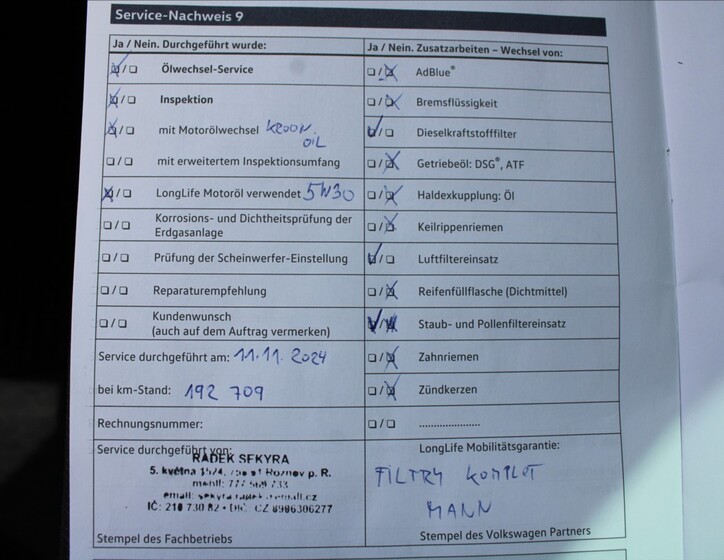 Service-Nachweis 9
Ja / Nein. Durchgeführt wurde:
Ölwechsel-Service
Inspektion
mit Motorölwechsel KROON OIL
mit erweitertem Inspektionsumfang
LongLife Motoröl verwendet 5W30
Korrosions- und Dichtheitsprüfung der
Erdgasanlage
Prüfung der Scheinwerfer-Einstellung
Reparaturempfehlung
Kundenwunsch
(auch auf dem Auftrag vermerken)
Service durchgeführt am: 11.11.2024
bei km-Stand: 192 709
Rechnungsnummer:
Service durchgeführt von:
RADEK SEKYRA
5. května
Rožnov p. R.
IČ: 210 730 82 • DIČ: CZ 8906306277
Stempel des Fachbetriebs
Ja / Nein. Zusatzarbeiten – Wechsel von:
AdBlue®
Bremsflüssigkeit
Dieselkraftstofffilter
Getriebeöl: DSG®, ATF
Haldexkupplung: Öl
Keilrippenriemen
Luftfiltereinsatz
Reifenfüllflasche (Dichtmittel)
Staub- und Pollenfiltereinsatz
Zahnriemen
Zündkerzen
.....................
LongLife Mobilitätsgarantie:
FILTRY KOMPLET
MANN
Stempel des Volkswagen Partners